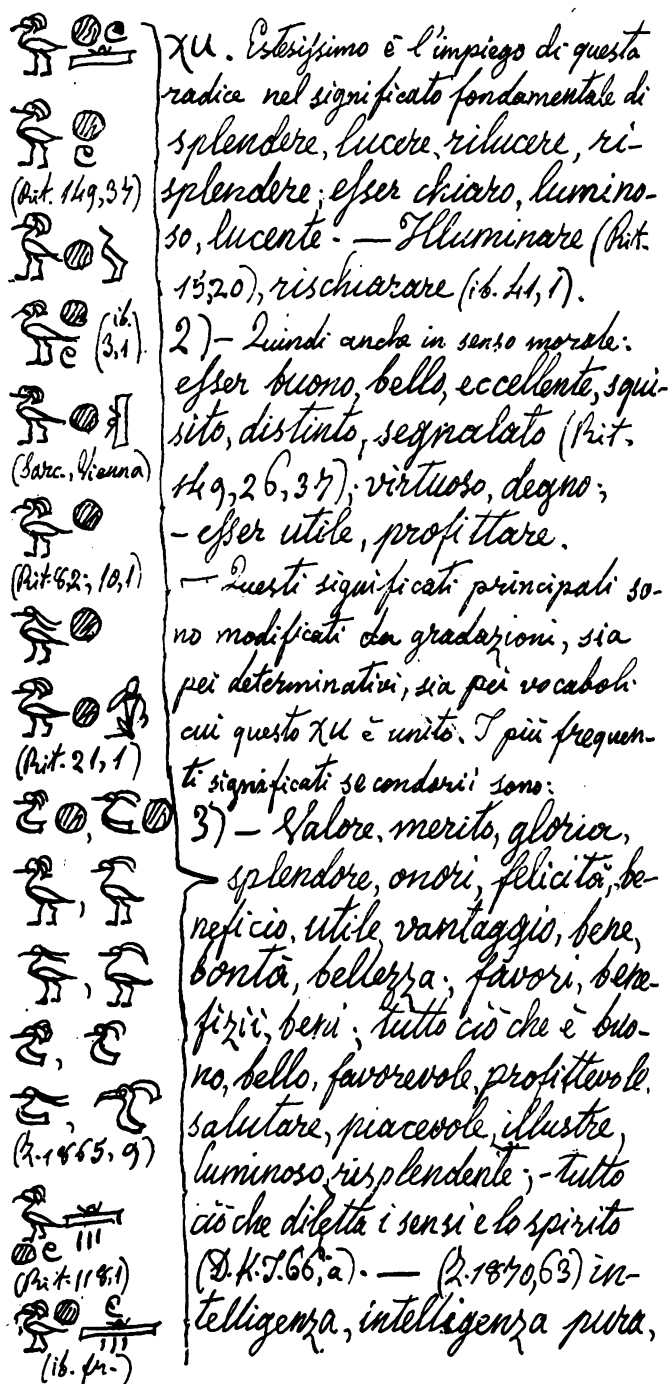 (Rit. 149,37)
(ib.
3,1).
(Sarc., Vienna)
(Rit. 8,2; 10,1)
(Rit. 21,1)
(Z. 1865, 9)
(Rit. 118,1)
(ib. fr.)
χU. Estesissimo è l'impiego di questa
radice nel significato fondamentale di
splendere, lucere, rilucere, ri-
splendere; esser chiaro, lumino-
so, lucente. — Illuminare (Rit.
15,20), rischiarare (ib. 41,1).
2) — Quindi anche in senso morale:
esser buono, bello, eccellente, squi-
sito, distinto, segnalato (Rit.
149, 26, 37); virtuoso, degno;
- esser utile, profittare.
— Questi significati principali so-
no modificati da gradazioni, sia
pei determinativi, sia pei vocaboli
cui questo χU è unito. I più frequen-
ti significati secondarii sono:
3) — Valore, merito, gloria,
splendore, onori, felicità, be-
neficio, utile, vantaggio, bene,
bontà, bellezza; favori, bene-
fizii, beni; tutto ciò che è buo-
no, bello, favorevole, profittevole,
salutare, piacevole, illustre,
luminoso, risplendente; - tutto
ciò che diletta i sensi e lo spirito
(D.K.J. 66, a). — (Z. 1870, 63) in-
telligenza, intelligenza pura,